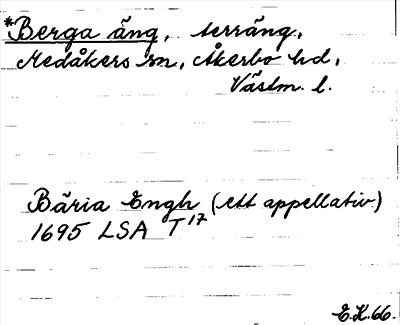 *Berga äng, terräng,
Medåkers sn, Åkerbo hd,
Västm. l.
Bäria Engh (ett appellativ)
1695 LSA T 17
E.K.66.